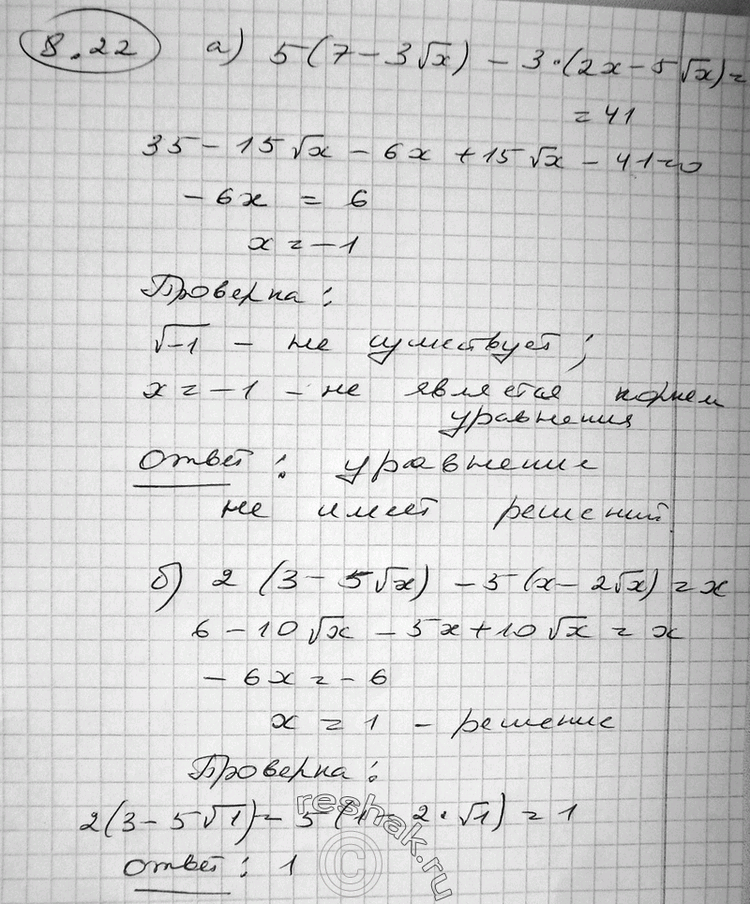 8.22 а) 5(7 - 3√x) - 3·(2x - 5√x) =
= 41
35 - 15√x - 6x + 15√x - 41 = 0
-6x = 6
x = -1
Проверка:
√-1 - не существует;
x = -1 - не является корнем
уравнения
Ответ: уравнение
не имеет решений
б) 2 (3 - 5√x) - 5(x - 2√x) = x
6 - 10√x - 5x + 10√x = x
-6x = -6
x = 1 - решение
Проверка:
2(3 - 5√1) - 5(1 - 2·√1) = 1
Ответ: 1
reshak.ru
©